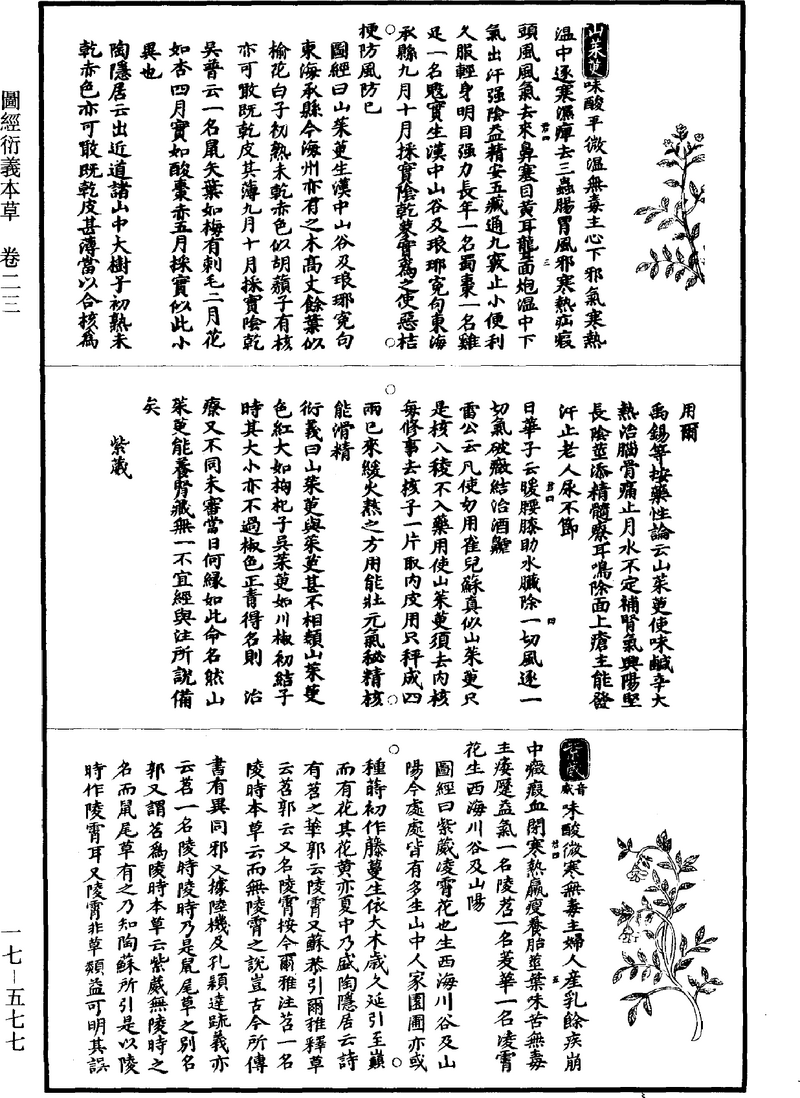 圖經衍義本草　卷二三
山茱萸味酸平微溫無毒主心下邪氣寒熱
溫中逐寒濕痺去三蟲腸胃風邪寒熱疝瘕
頭風風氣去來鼻塞目黃耳聾面皰溫中下
氣出汗强陰益精安五臟通九竅止小便利
久服輕身明目强力長年一名蜀棗一名雞
足一名鬾實生漢中山谷及琅琊冤句東海
承縣九月十月採實陰乾蓼實爲之使惡桔
梗防風防已
圖經曰山茱萸生漢中山谷及琅琊冤句
東海承縣今海州亦有之木高丈餘葉似
榆花白子初熟未乾赤色似胡蘋子有核
亦可噉既乾皮甚薄九月十月採實陰乾
吳普云一名鼠矢葉如梅有刺毛二月花
如杏四月實如酸棗赤五月採實似此小
異也
陶隱居云出近道諸山中大樹子初熟未
乾赤色亦可噉既乾皮甚薄當以合核爲
用爾
禹錫等按藥性論云山茱萸使味鹹辛大
熱治腦骨痛止月水不定補腎氣興陽堅
長陰莖添精髓療耳鳴除面上瘡主能發
汗止老人尿不節
日華子云暖腰膝助水臟除一切風逐一
切氣破癥結治酒皶
雷公云凡使勿用雀兒蘇真似山茱萸只
是核八稜不入藥用使山茱萸須去內核
每修事去核子一片取內皮用只秤成四
兩已來緩火熬之方用能壯元氣秘精核
能滑精
衍義曰山茱萸與茱萸甚不相類山茱萸
色紅大如枸杞子吳茱萸如川椒初結子
時其大小亦不過椒色正青得名則　治
療又不同未審當日何緣如此命名然山
茱萸能養腎臟無一不宜經與注所說備
矣
紫葳
紫葳音威味酸微寒無毒主婦人產乳餘疾崩
中癥瘕血閉寒熱羸瘦養胎莖葉味苦無毒
主痿蹷益氣一名陵苕一名茇華一名凌霄
花生西海川谷及山陽
圖經曰紫葳凌霄花也生西海川谷及山
陽今處處皆有多生山中人家園圃亦或
種蒔初作藤蔓生依大木歲久延引至巔
而有花其花黃赤夏中乃盛陶隱居云詩
有苕之華郭云陵霄又蘇恭引爾雅釋草
云苕郭云又名陵霄按今爾雅注苕一名
陵時本草云而無陵霄之說豈古今所傳
書有異同邪又據陸機及孔穎達疏義亦
云苕一名陵時陵時乃是鼠尾草之別名
郭又謂苕爲陵時本草云紫葳無陵時之
名而鼠尾草有之乃知陶蘇所引是以陵
時作陵霄耳又陵霄非草類益可明其誤
一七—五七七